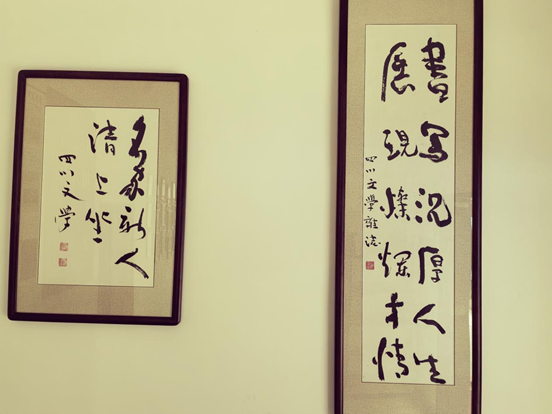 名家新人
请上坐
四川文學
書写沉厚人生
展現燦烂才情
四川文學雜誌